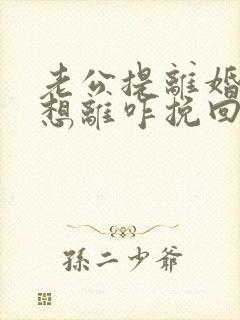 老公提離婚
想離咋挽回
孫二少爺